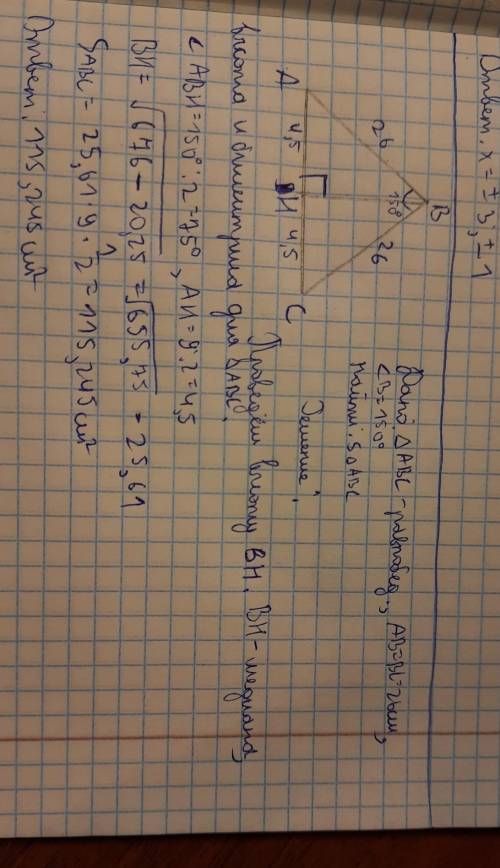 Ответ: x = ± 3; ± 1
B
150°
26
26
A
4,5
H
4,5
C
Дано: △ABC - равнобед., AB=BC=26см,
∠B=150°
Найти: S△ABC
Решение:
Проведём высоту BH. BH - медиана,
высота и биссектриса для △ABC.
∠ABH=150°:2=75°, AH=9:2=4,5
BH= √676-20,25 = √655,75 = 25,61
SABC = 25,61·9·1/2 = 115,245 см²
Ответ: 115,245 см²